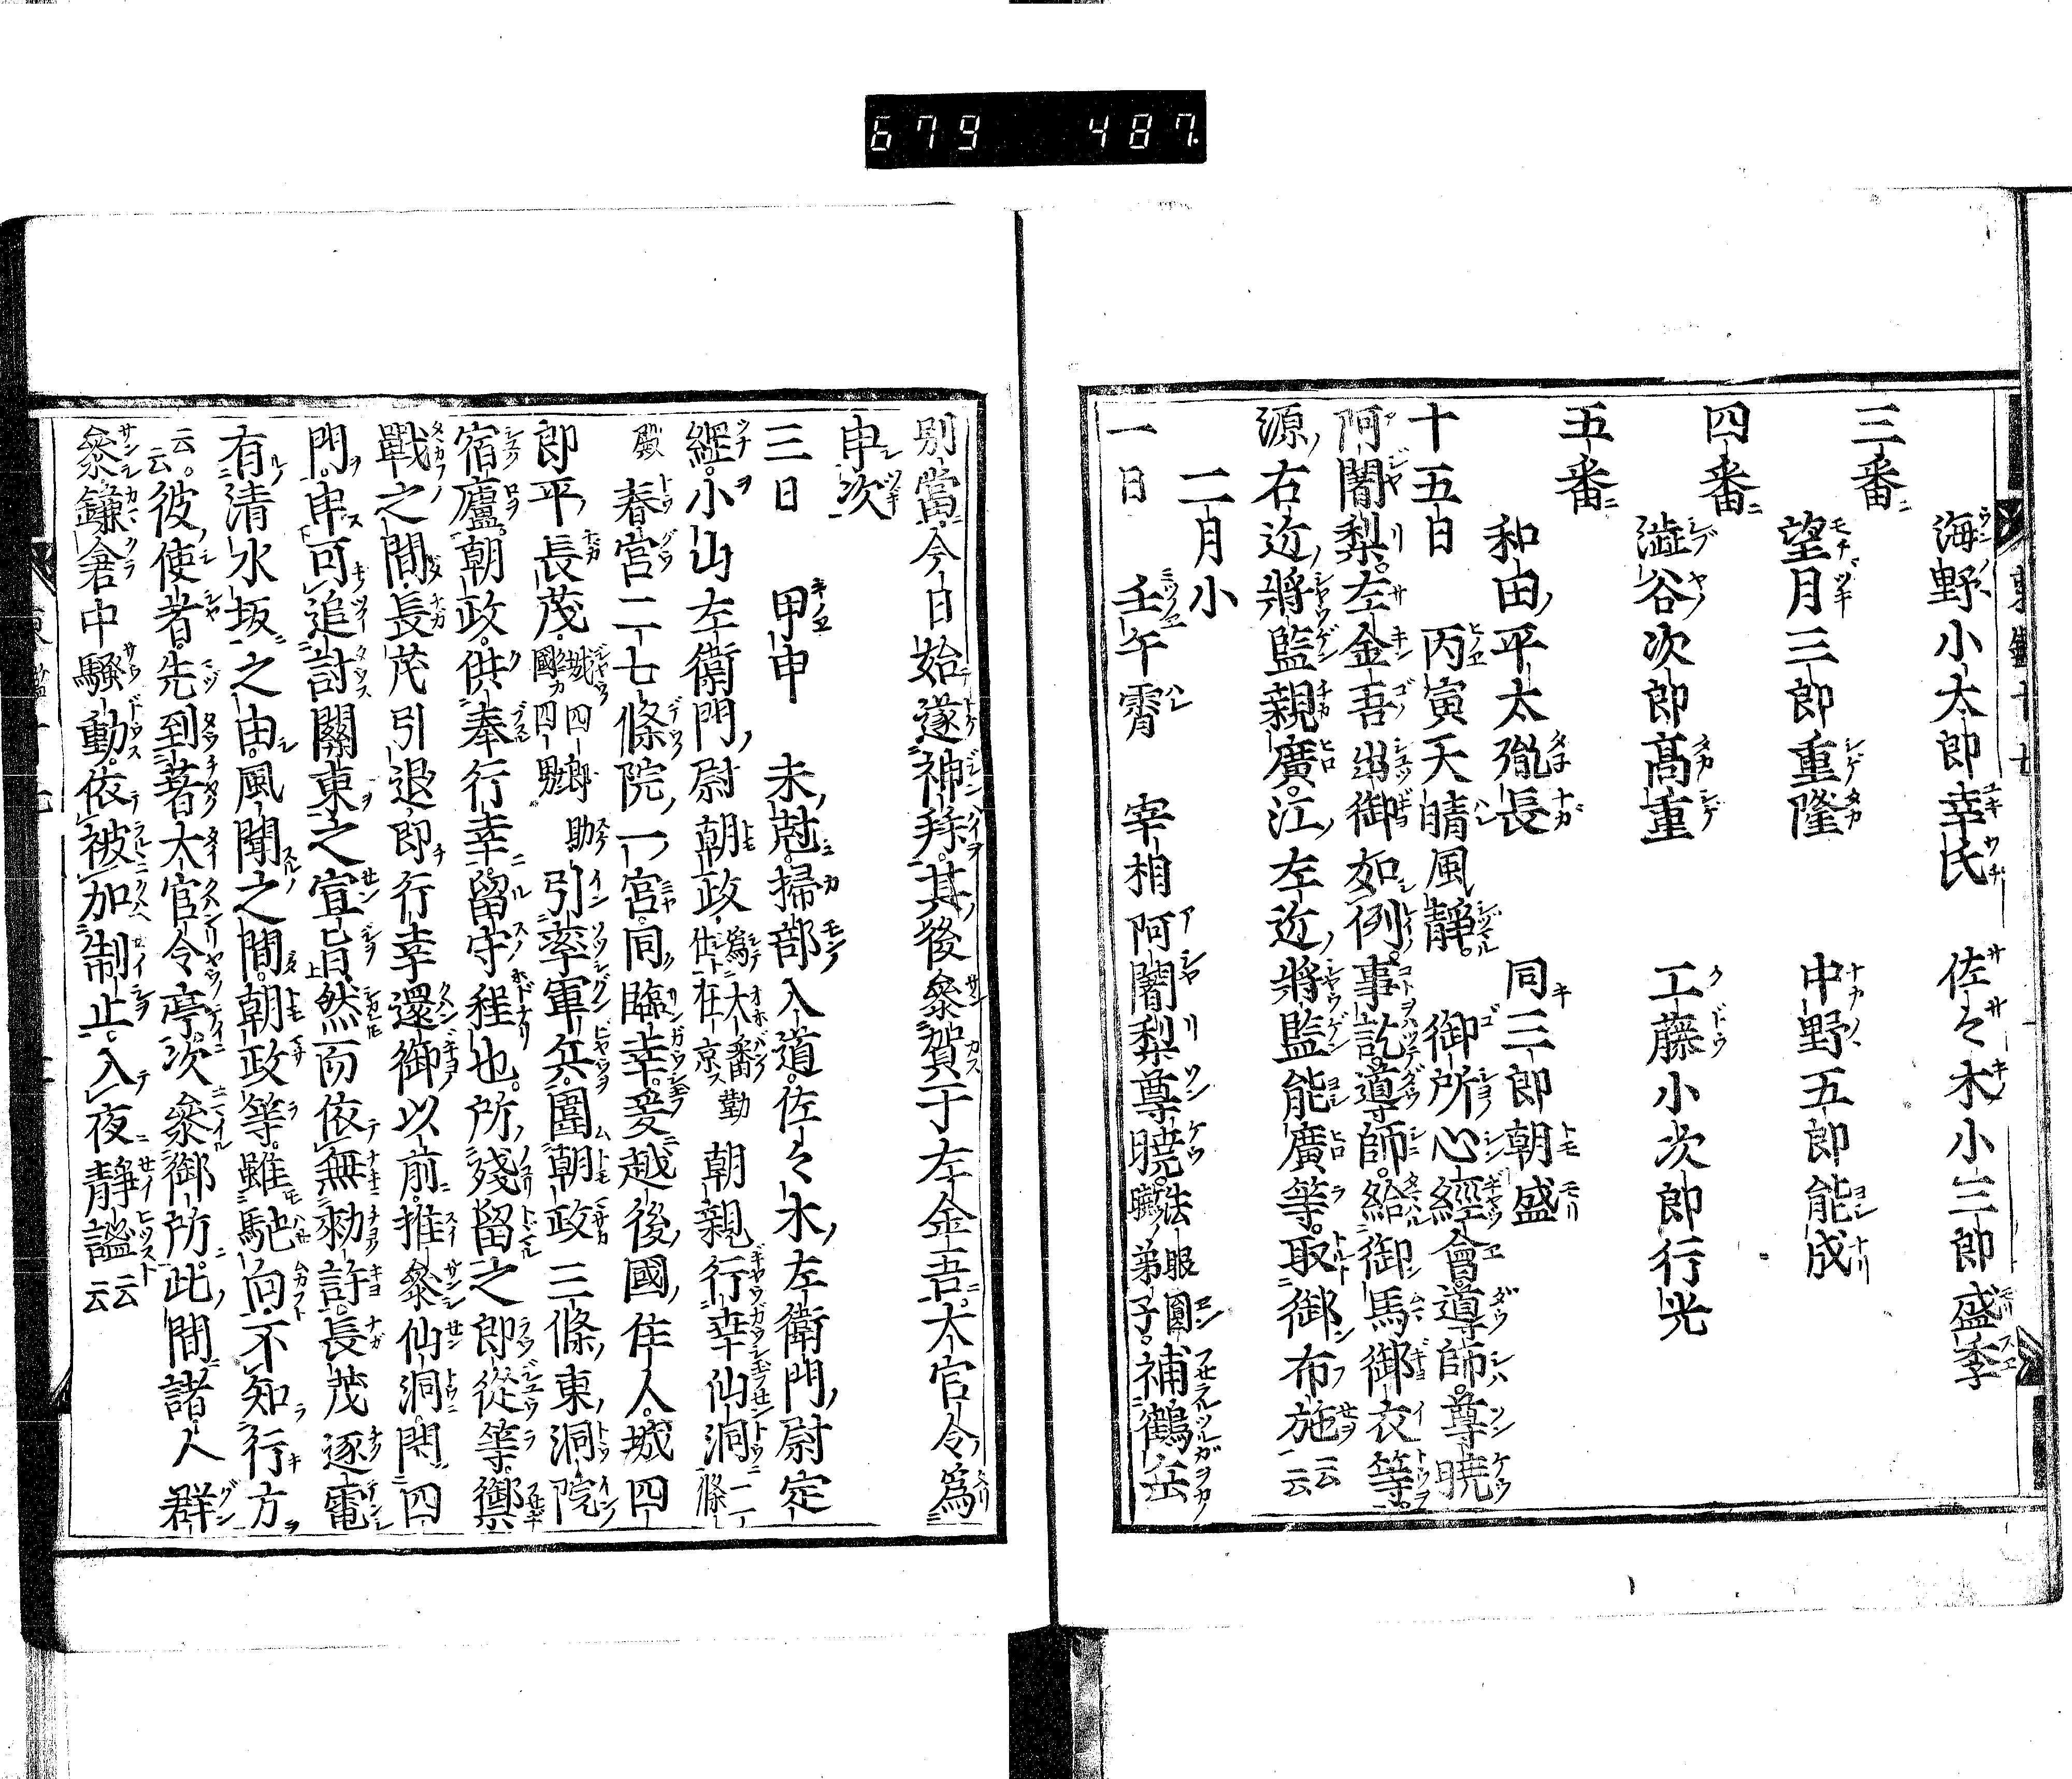 679 487
三番
海野小太郎幸氏 佐々木小三郎盛季
四番
望月三郎重隆 中野五郎能成
五番
澁谷次郎髙重 工藤小次郎行光
和田平太胤長 同三郎朝盛
十五日 丙寅天晴風靜。御所心經會導師。尊曉
阿闍梨。左金吾出御如例。事訖。導師。給御馬御衣等。
源右近將監親廣。江左近將監能廣等。取御布施云云
二月小
一日 壬午霽 宰相阿闍梨尊曉。法眼圓曉弟子。補鶴岳
別當今日始遂神拜。其後參賀于左金吾。大官令爲
申次
三日 甲申 未尅。掃部入道。佐々木左衛門尉定
經。小山左衛門尉朝政爲大番勤仕在京 朝覲行幸仙洞二條
殿 春宮二七條院一宮。同臨幸。爰越後國住人。城四
郎平長茂。城四郎助國四男 引率軍兵。圍朝政三條東洞院
宿廬。朝政。供奉行幸。留守程也。所殘留之郎從等。禦
戰之間。長茂引退。即行幸還御以前。推參仙洞。閇四
門。申可追討關東之宣旨。然而依無勅許。長茂逐電
有清水坂之由。風聞之間。朝政等。雖馳向。不知行方
云云。彼使者。先到著大官令亭。次參御所。此間諸人群
參鎌倉中騷動。依被加制止。入夜靜謐云云